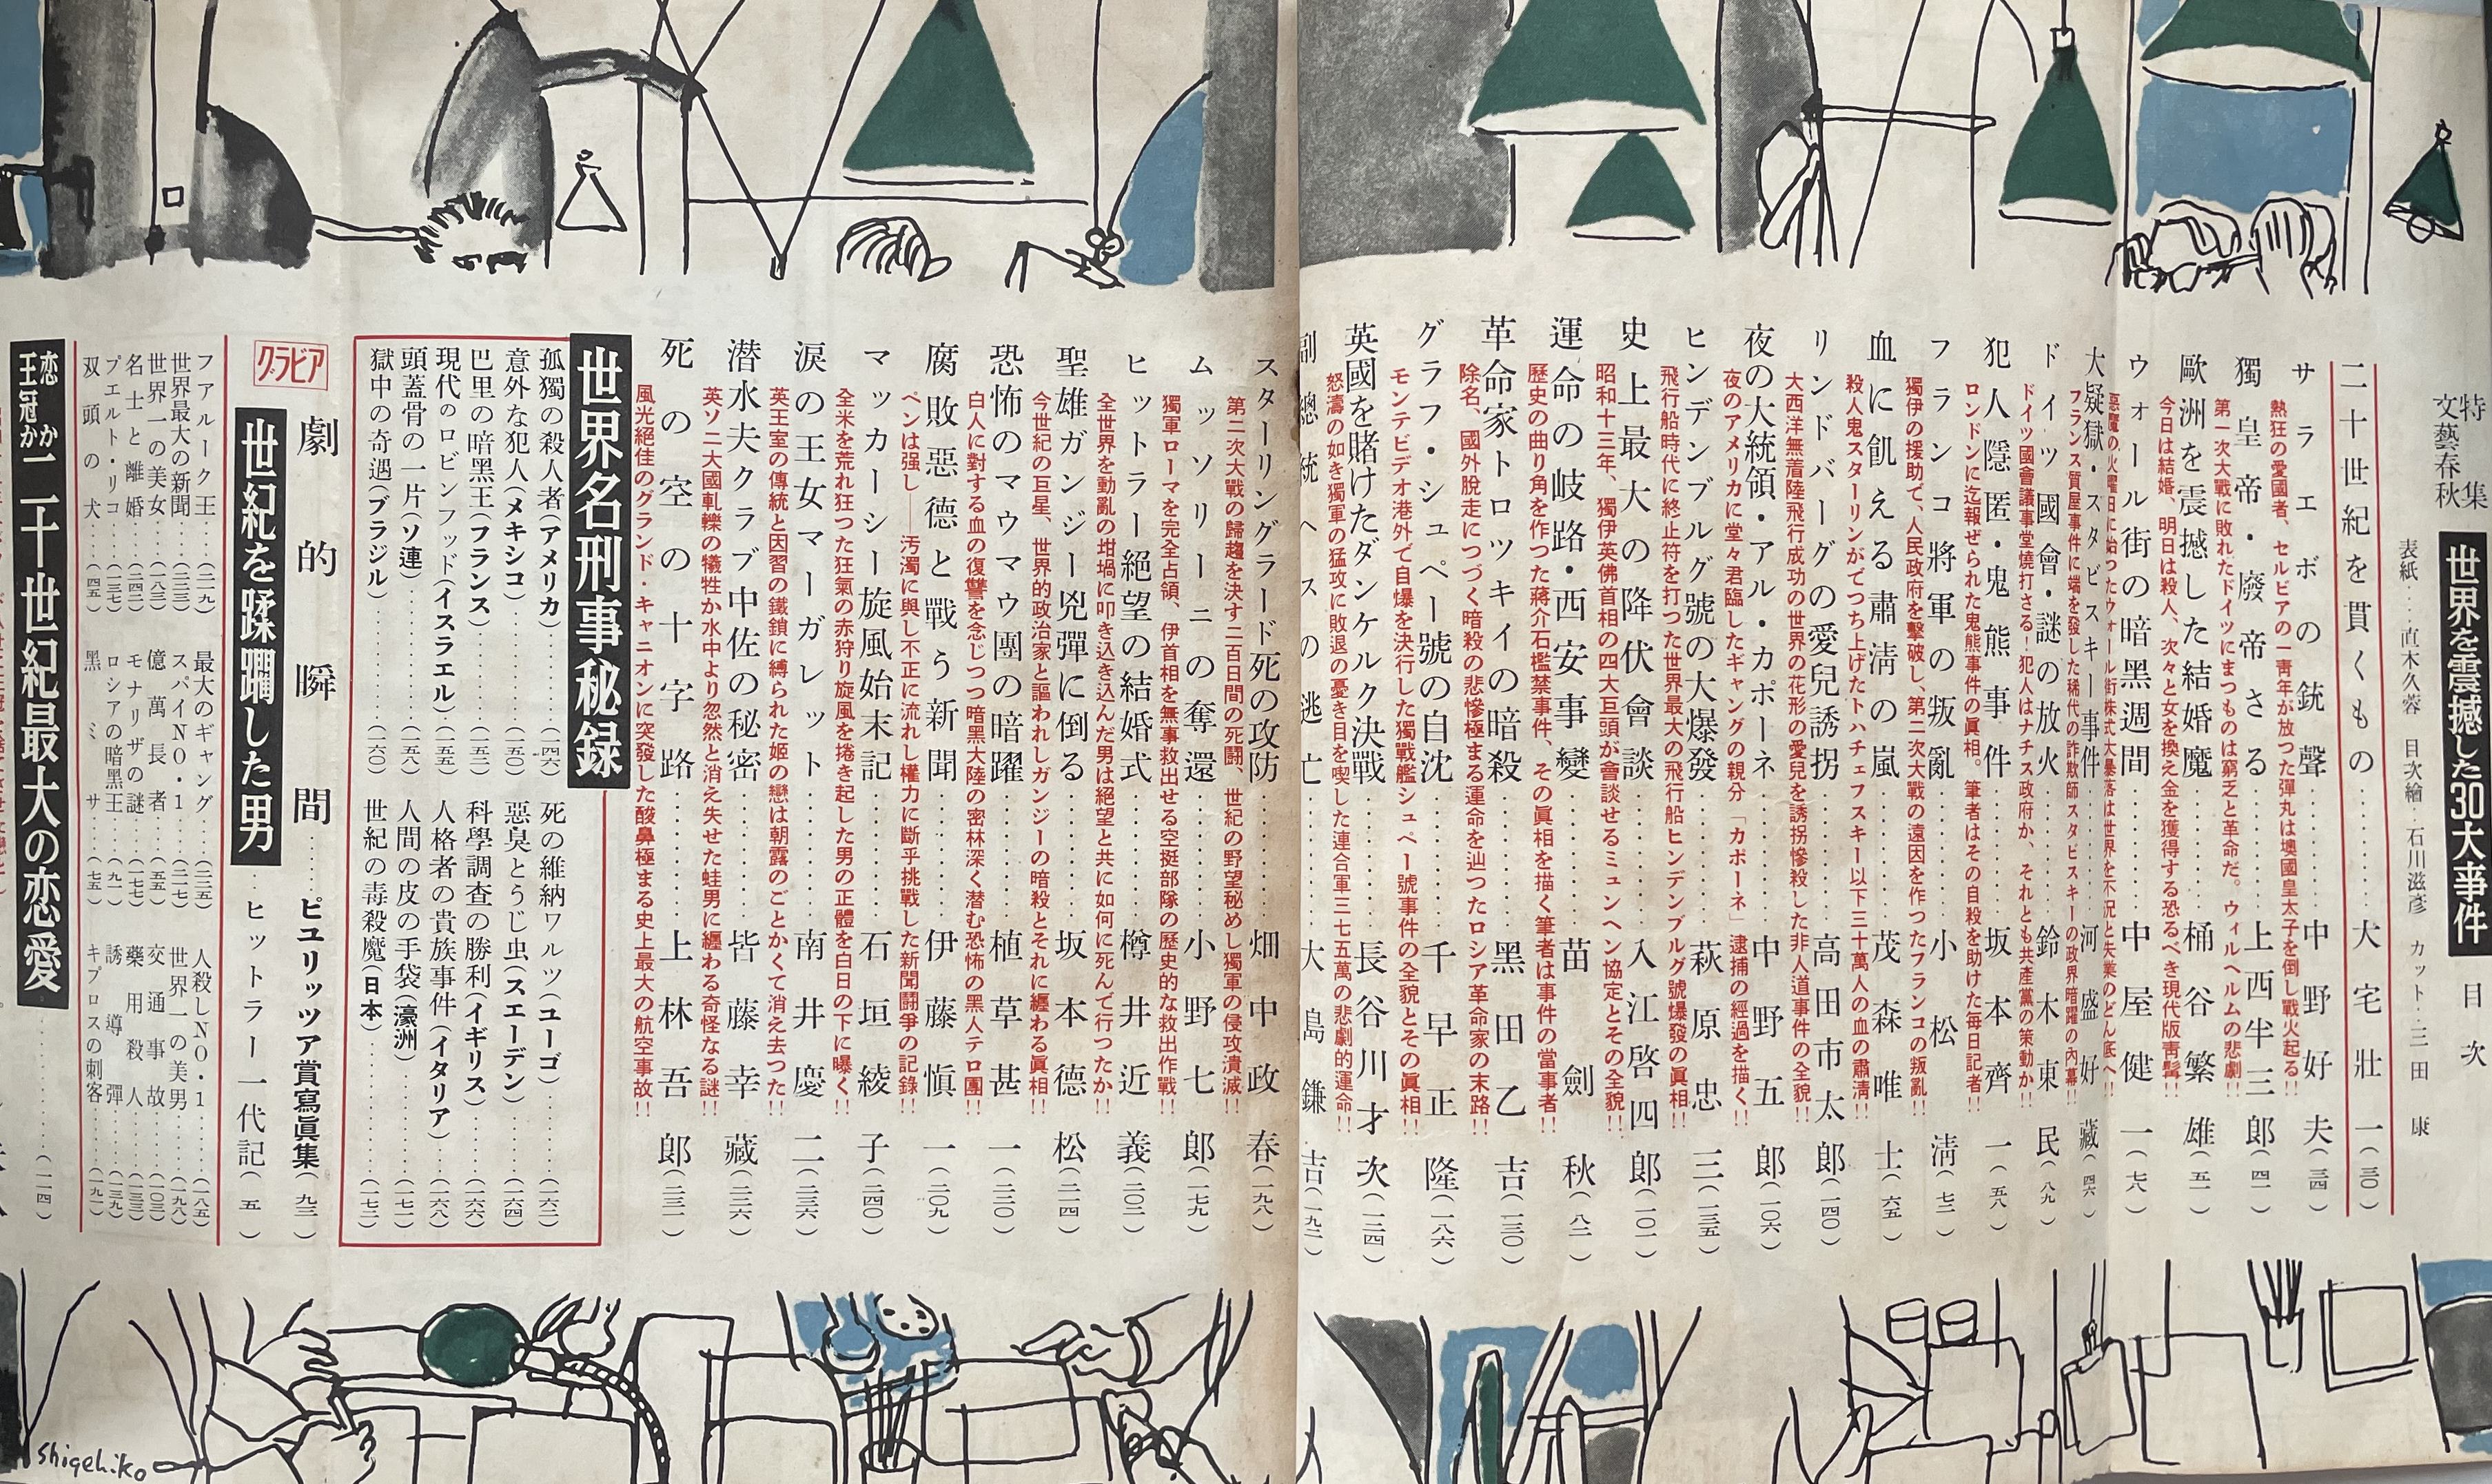 特集
文藝春秋
世界を震撼した30大事件
目次
表紙‥‥直木久蓉 目次繪‥石川滋彦 カット‥三田康
二十世紀を貫くもの‥‥大宅壯一(一三〇)
サラエボの銃聲‥‥中野好夫(三四)
熱狂の愛國者、セルビアの一靑年が放つた彈丸は墺國皇太子を倒し戰火起る!!
獨皇帝・廢帝さる‥‥上西半三郎(四一)
第一次大戰に敗れたドイツにまつものは窮乏と革命だ。ウィルヘルムの悲劇!!
歐洲を震撼した結婚魔‥‥桶谷繁雄(五一)
今日は結婚、明日は殺人、次々と女を換え金を獲得する恐るべき現代版靑髯!!
ウォール街の暗黑週間‥‥中屋健一(七八)
惡魔の火曜日に始つたウォール街株式大暴落は世界を不況と失業のどん底へ!!
大疑獄・スタビスキー事件‥‥河盛好藏(四六)
フランス質屋事件に端を發した稀代の詐欺師スタビスキーの政界暗躍の內幕!!
ドイツ國會・謎の放火‥‥鈴木東民(八九)
ドイツ國會議事堂燒打さる!犯人はナチス政府か、それとも共產黨の策動か!!
犯人隱匿・鬼熊事件‥‥坂本齊一(五八)
ロンドンに迄報ぜられた鬼熊事件の眞相。筆者はその自殺を助けた每日記者!!
フランコ將軍の叛亂‥‥小松淸(七二)
獨伊の援助で、人民政府を擊破し、第二次大戰の遠因を作つたフランコの叛亂!!
血に飢える肅淸の嵐‥‥茂森唯士(六五)
殺人鬼スターリンがでつち上げたトハチェフスキー以下三十萬人の血の肅淸!!
リンドバーグの愛兒誘拐‥‥高田市太郎(一四〇)
大西洋無着陸飛行成功の世界の花形の愛兒を誘拐慘殺した非人道事件の全貌!!
夜の大統領・アル・カポーネ‥‥中野五郎(一〇六)
夜のアメリカに堂々君臨したギャングの親分「カポーネ」逮捕の經過を描く!!
ヒンデンブルグ號の大爆發‥‥萩原忠三(一三五)
飛行船時代に終止符を打つた世界最大の飛行船ヒンデンブルグ號爆發の眞相!!
史上最大の降伏會談‥‥入江啓四郎(一〇一)
昭和十三年、獨伊英佛首相の四大巨頭が會談せるミュンヘン協定とその全貌!!
運命の岐路・西安事變‥‥苗劍秋(八二)
歷史の曲り角を作つた蔣介石檻禁事件、その眞相を描く筆者は事件の當事者!!
革命家トロツキイの暗殺‥‥黑田乙吉(一三〇)
除名、國外脫走につづく暗殺の悲慘極まる運命を辿つたロシア革命家の末路!!
グラフ・シュペー號の自沈‥‥千早正隆(一八六)
モンテビデオ港外で自爆を決行した獨戰艦シュペー號事件の全貌とその眞相!!
英國を賭けたダンケルク決戰‥‥長谷川才次(一二四)
怒濤の如き獨軍の猛攻に敗退の憂き目を喫した連合軍三七五萬の悲劇的運命!!
副總統ヘスの逃亡‥‥大島鎌吉(一九二)
スターリングラード死の攻防‥‥畑中政春(一九八)
第二次大戰の歸趨を決す二百日間の死闘、世紀の野望秘めし獨軍の侵攻潰滅!!
ムッソリーニの奪還‥‥小野七郎(一七九)
獨軍ローマを完全占領、伊首相を無事救出せる空挺部隊の歷史的な救出作戰!!
ヒットラー絕望の結婚式‥‥樽井近義(二〇二)
全世界を動亂の坩堝に叩き込き込んだ男は絕望と共に如何に死んで行つたか!!
聖雄ガンジー兇彈に倒る‥‥坂本德松(二一四)
今世紀の巨星、世界的政治家と謳われしガンジーの暗殺とそれに纏わる眞相!!
恐怖のマウマウ團の暗躍‥‥植草甚一(二二〇)
白人に對する血の復讐を念じつつ暗黑大陸の密林深く潛む恐怖の黑人テロ團!!
腐敗惡德と戰う新聞‥‥伊藤愼一(二〇九)
ペンは强し――汚濁に與し不正に流れし權力に斷乎挑戰した新聞鬪爭の記錄!!
マッカーシー旋風始末記‥‥石垣綾子(二四〇)
全米を荒れ狂つた狂氣の赤狩り旋風を捲き起した男の正體を白日の下に曝く!!
淚の王女マーガレット‥‥南井慶二(二三六)
英王室の傳統と因習の鐵鎖に縛られた姬の戀は朝露のごとかくて消え去つた!!
潜水夫クラブ中佐の秘密‥‥皆藤幸藏(二三六)
英ソ二大國軋轢の犧牲か水中より忽然と消え失せた蛙男に纏わる奇怪なる謎!!
死の空の十字路‥‥上林吾郎(二三一)
風光絕佳のグランド・キャニオンに突發した酸鼻極まる史上最大の航空事故!!
世界名刑事秘録
孤獨の殺人者(アメリカ)‥‥(一四六)
意外な犯人(メキシコ)‥‥(一五〇)
巴里の暗黑王(フランス)‥‥(一五二)
現代のロビンフッド(イスラエル)‥‥(一五五)
頭蓋骨の一片(ソ連)‥‥(一五八)
獄中の奇遇(ブラジル)‥‥(一六〇)
死の維納ワルツ(ユーゴ)‥‥(一六二)
惡臭とうじ虫(スエーデン)‥‥(一六四)
科學調査の勝利(イギリス)‥‥(一六六)
人格者の貴族事件(イタリア)‥‥(一六八)
人間の皮の手袋(濠洲)‥‥(一七一)
世紀の毒殺魔(日本)‥‥(一七二)
グラビア
劇的瞬間‥‥ピュリッツア賞寫眞集(九三)
世紀を蹂躙した男‥‥ヒットラー一代記(五)
フアルーク王‥‥(二二九)
世界最大の新聞‥‥(二三三)
世界一の美女‥‥(一八三)
名士と離婚‥‥(二四二)
プエルト・リコ‥‥(一三七)
双頭の犬‥‥(四五)
最大のギャング‥‥(二二五)
スパイNO・1‥‥(二一七)
億萬長者‥‥(五五)
モナリザの謎‥‥(一七七)
ロシアの暗黑王‥‥(九一)
黑ミサ‥‥(七五)
人殺しNO・1‥‥(一八五)
世界一の美男‥‥(一九八)
交通事故‥‥(一〇三)
藥用殺人‥‥(一三三)
誘導彈‥‥(一三九)
キプロスの刺客‥‥(一九一)
恋か王冠か 二十世紀最大の恋愛‥‥(一一四)
Shigehiko